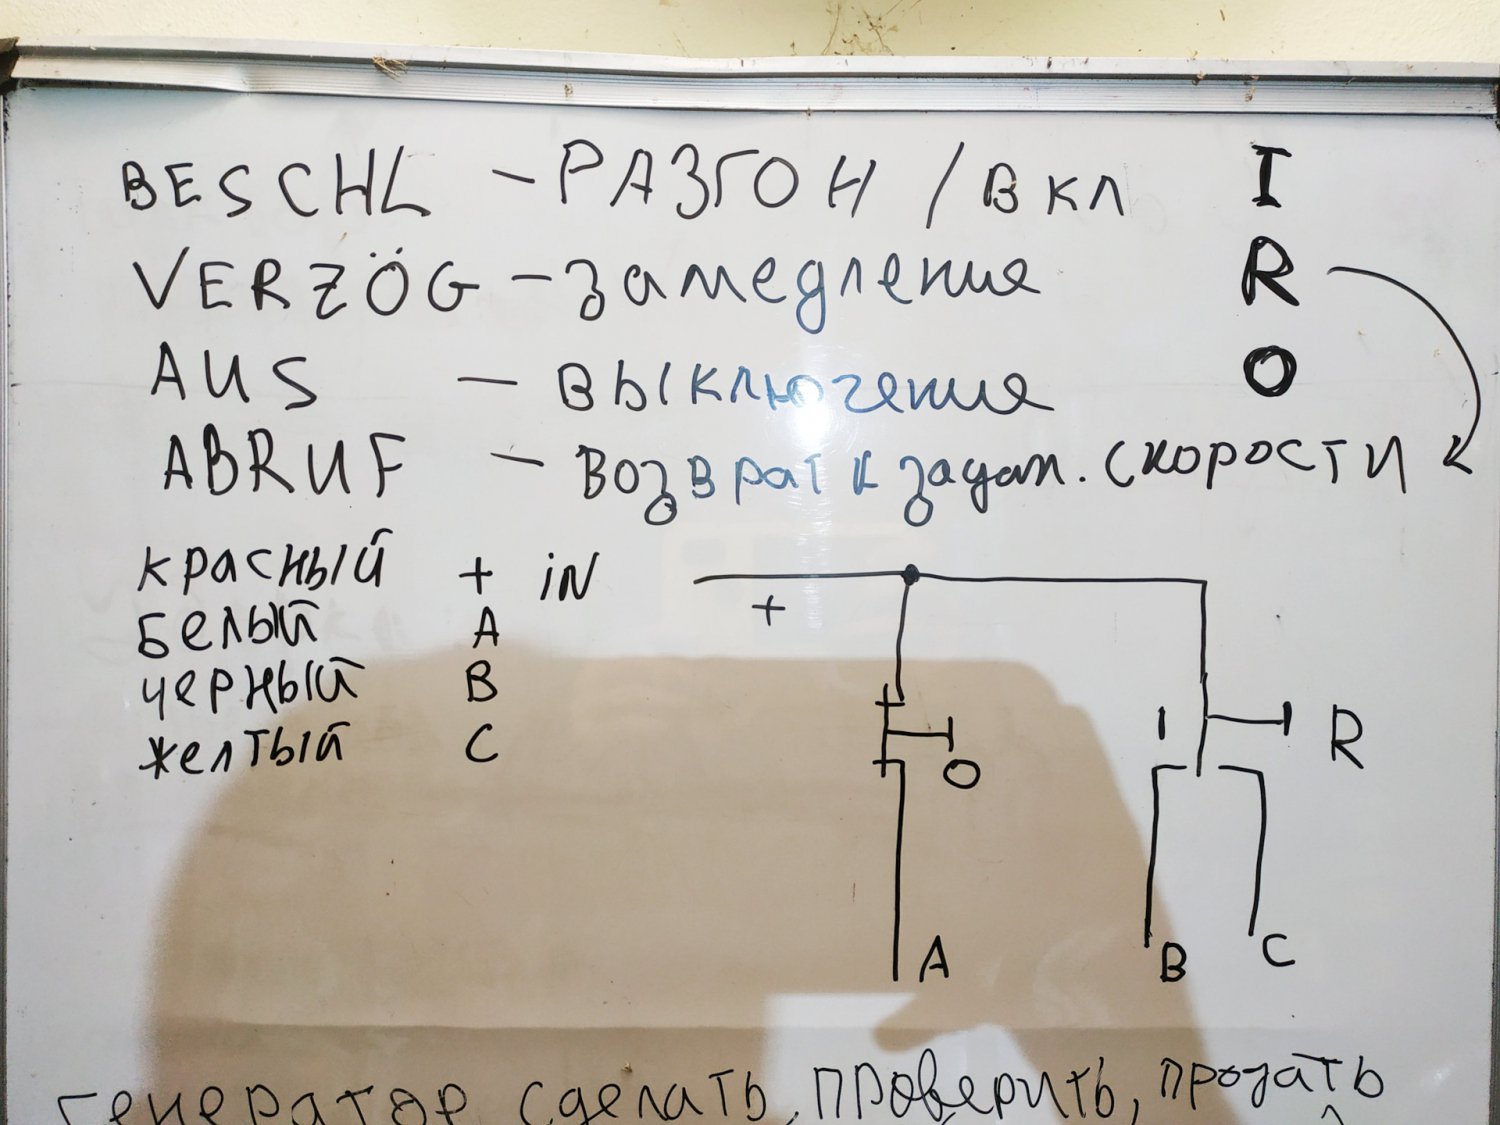 BESCHL - РАЗГОН / ВКЛ I
VERZÖG - замедление R
AUS - выключение O
ABRUF - возврат к задан. скорости
красный + iN
белый A
черный B
желтый C
+
O
I R
A
B C
генератор сделать, проверить, продать